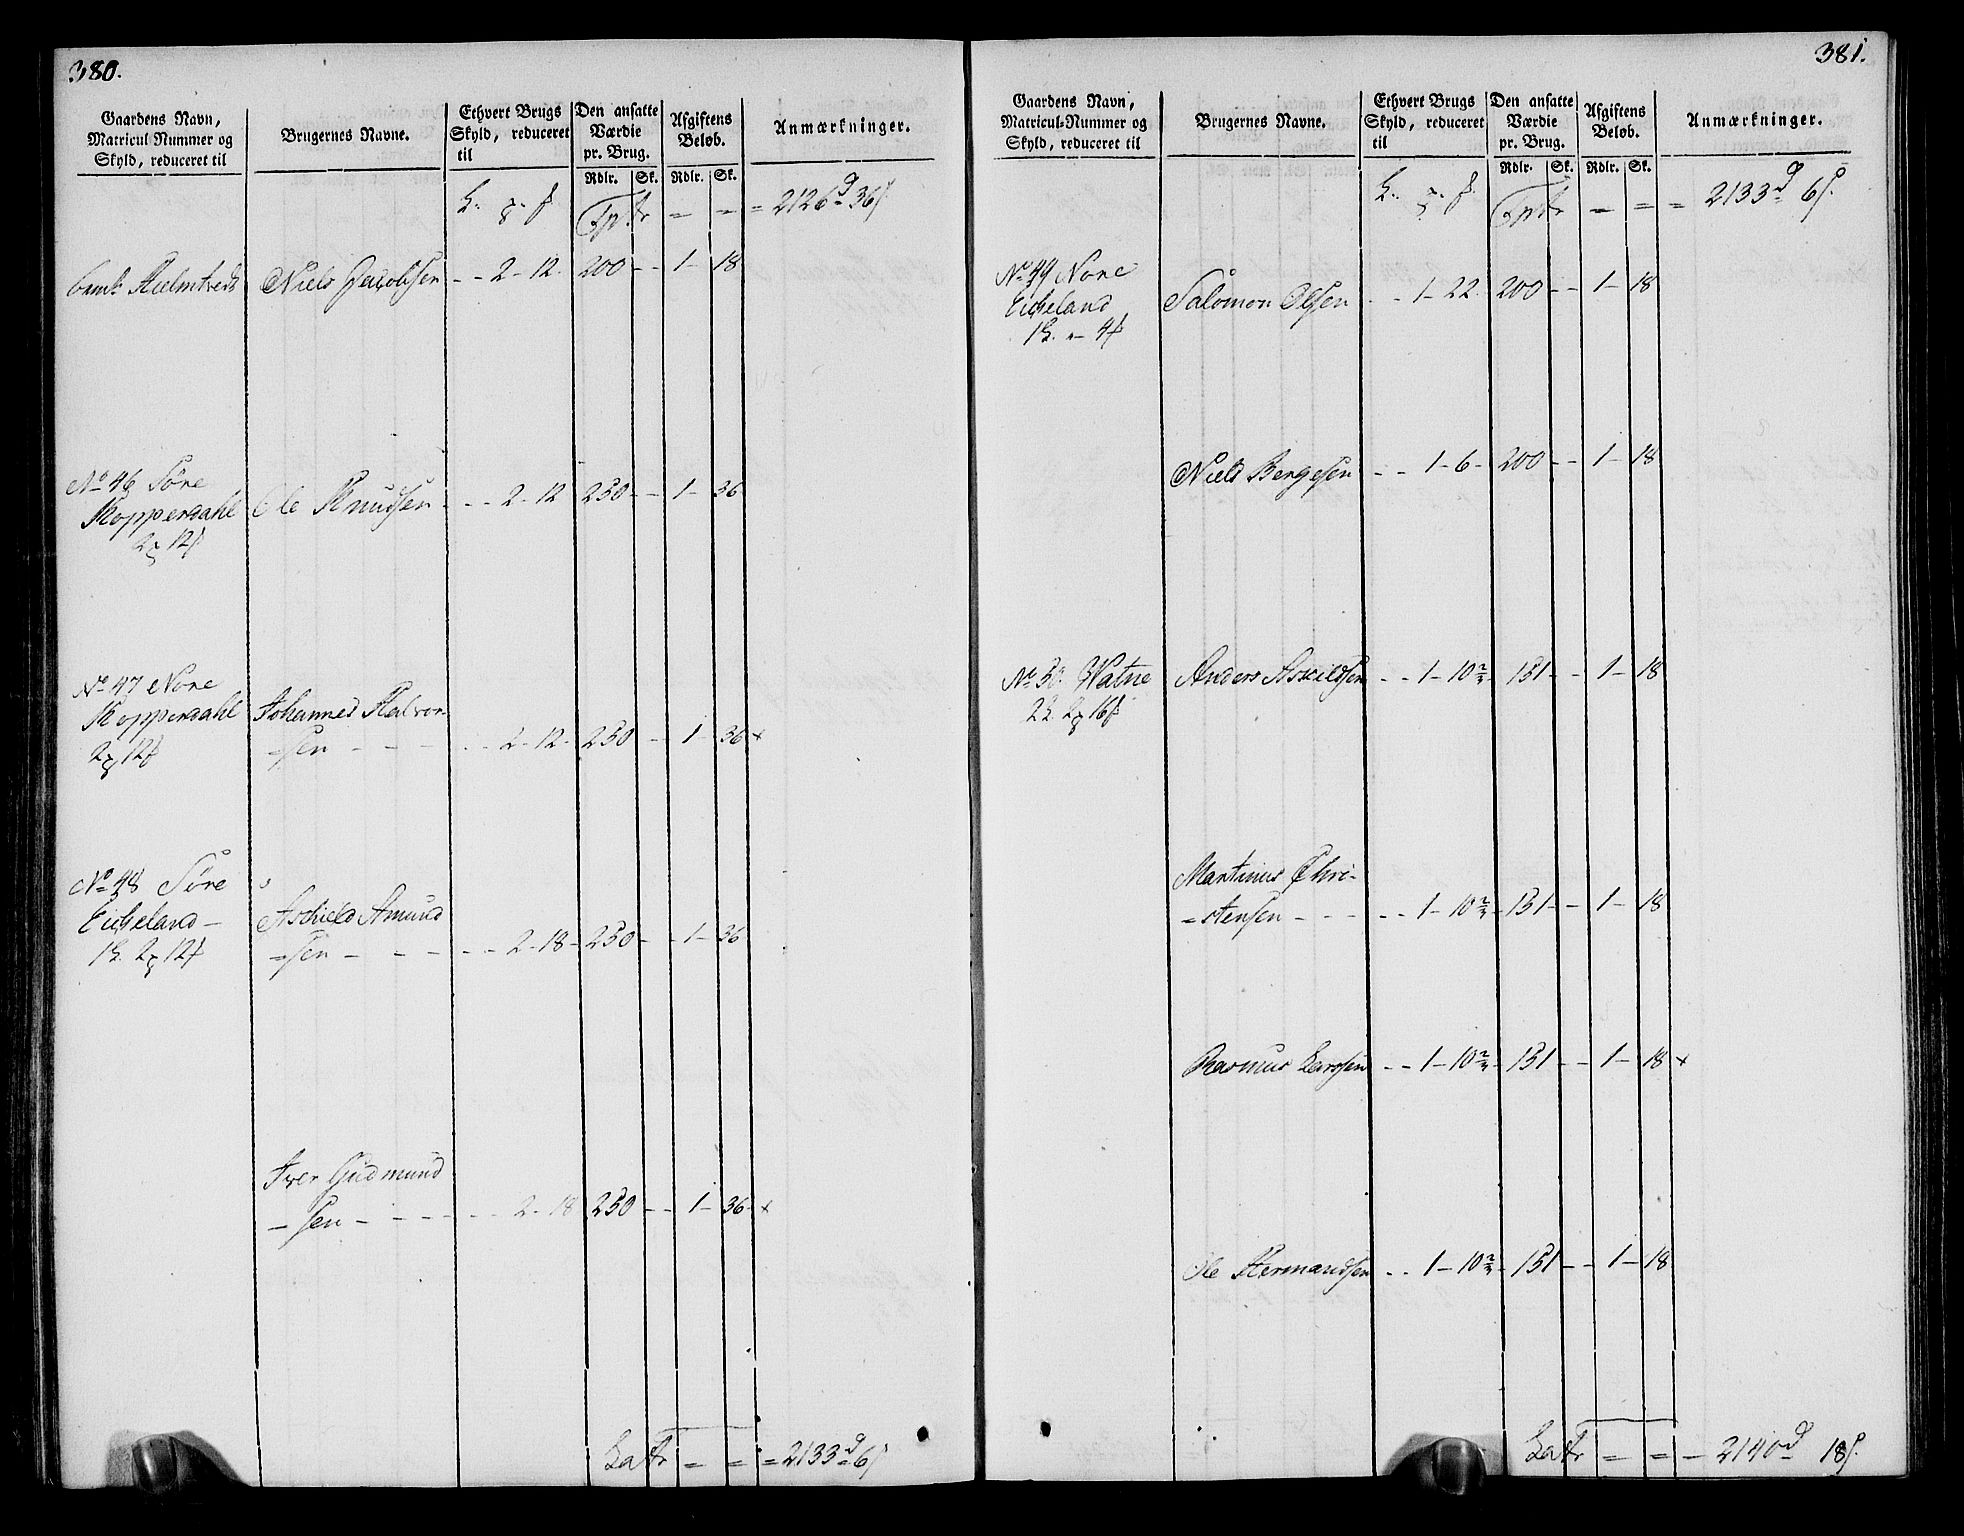 380.
Gaardens Navn,
Matricul-Nummer og
Skyld, reduceret til
Brugernes Navne.
Ethvert Brugs
Skyld, reduceret
til
Den ansatte
Værdie
pr. Brug.
Rdlr. Sk.
Afgiftens
Beløb.
Rdlr. Sk.
Anmærkninger.
Tptr = = = 2126 d 36 s
Niels Jacobsen - - 2 - 12 - 200 - - 1 - 18
No 46 Søre
Kopperdahl Ole Knudsen - - 2 - 12 250 - - 1 - 36
2 12
No 47 Nore
Kopperdahl Johannes Halvor-
2 12 =sen - - - - - 2 - 12 - 250 - - 1 - 36 x
No 48 Søre
Eicheland - Aschield Amund
1 L. 2 12 =sen - - - - - 2 - 18 - 250 - - 1 - 36
Iver Gudmund
=sen - - - - - - 2 - 18 250 - - 1 - 36 - x
Latr = = = 2133 d 6 s
381.
Gaardens Navn,
Matricul-Nummer og
Skyld, reduceret til
Brugernes Navne.
Ethvert Brugs
Skyld, reduceret
til
Den ansatte
Værdie
pr. Brug.
Rdlr. Sk.
Afgiftens
Beløb.
Rdlr. Sk.
Anmærkninger.
Tptr = = = 2133 d 6 s.
No 49 Nore
Eicheland Salomon Olsen - - 1 - 22 - 200 - - 1 - 18
1 L. - 4
Niels Bergesen - - 1 - 6 - 200 - - 1 - 18
No 50. Watne Anders Askildsen - - 1 - 10 2/3 - 151 - - 1 - 18
2 L. 2 16
Martinus Chri-
=stensen - - - - - 1 - 10 2/3 - 151 - - 1 - 18
Rasmus Larssen - - 1 - 10 2/3 - 151 - - 1 - 18 x
Ole Hermandsen - - 1 - 10 2/3 - 151 - - 1 - 18
Latr = = - 2140 d 18 s.